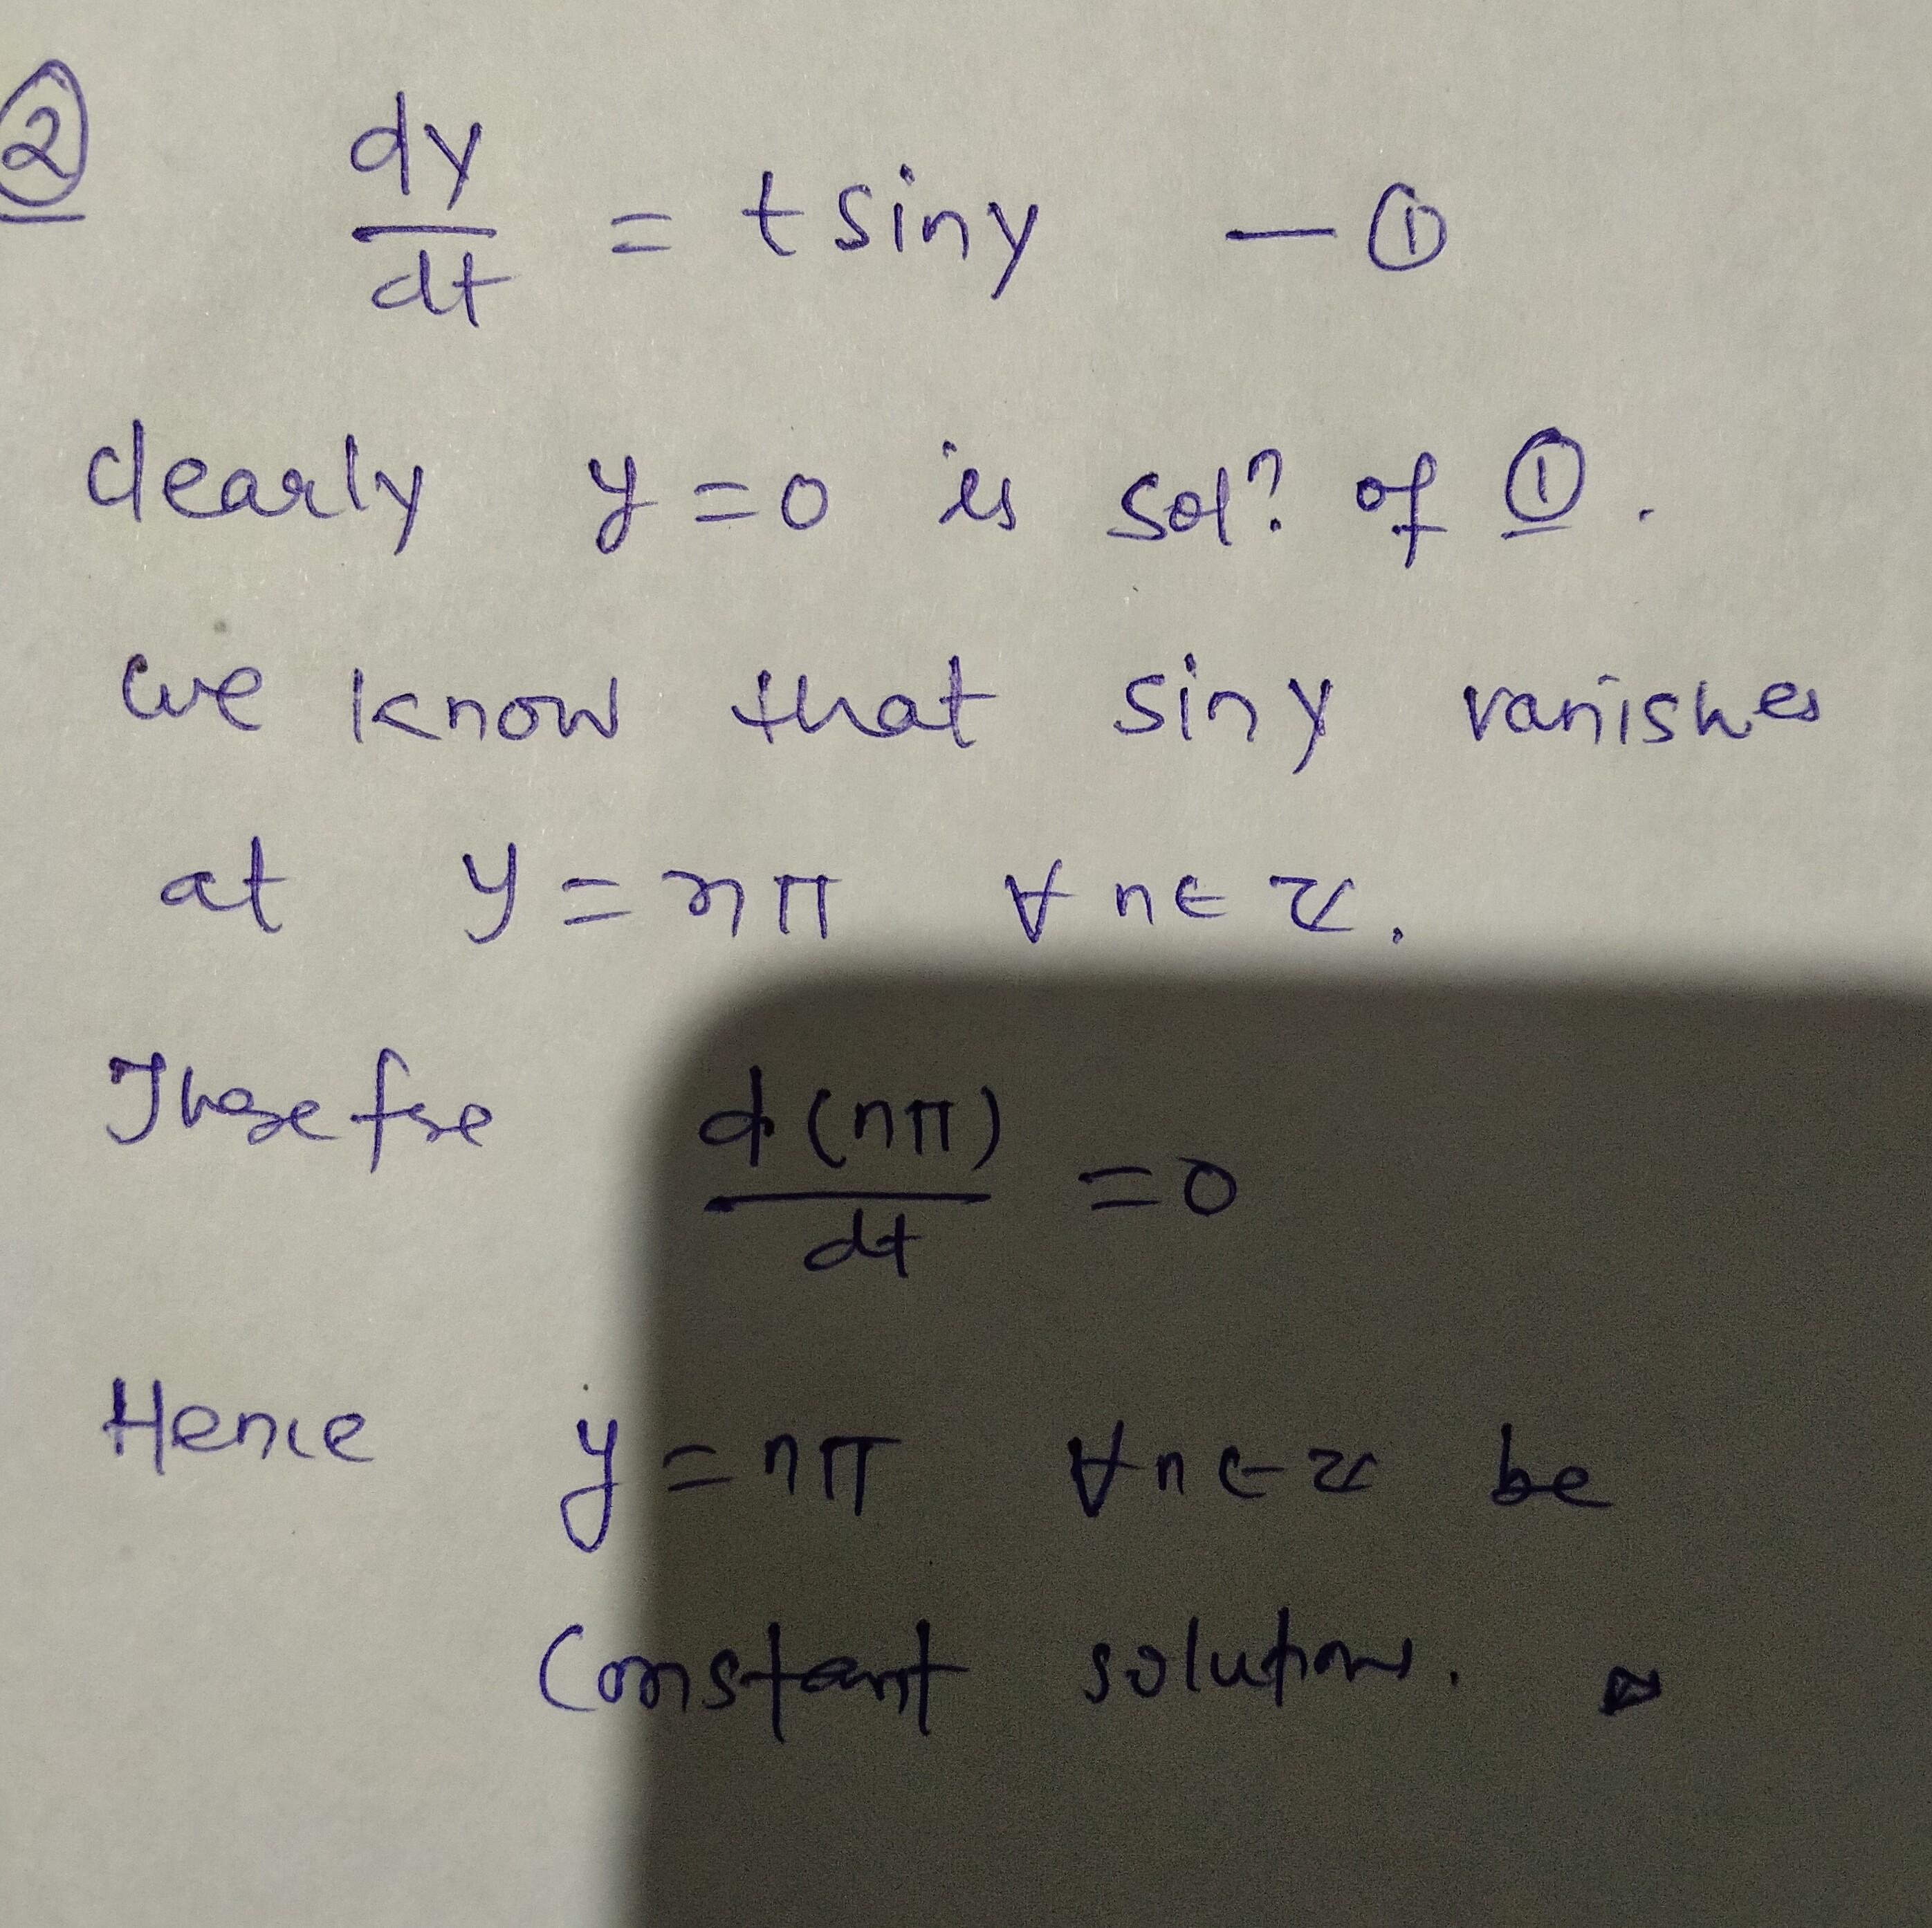 ② dy/dt = t sin y — ①
clearly y = 0 is solⁿ of ①.
we know that sin y vanishes
at y = nπ ∀ n ∈ ℤ.
Therefore d(nπ)/dt = 0
Hence y = nπ ∀ n ∈ ℤ be
Constant solutions.